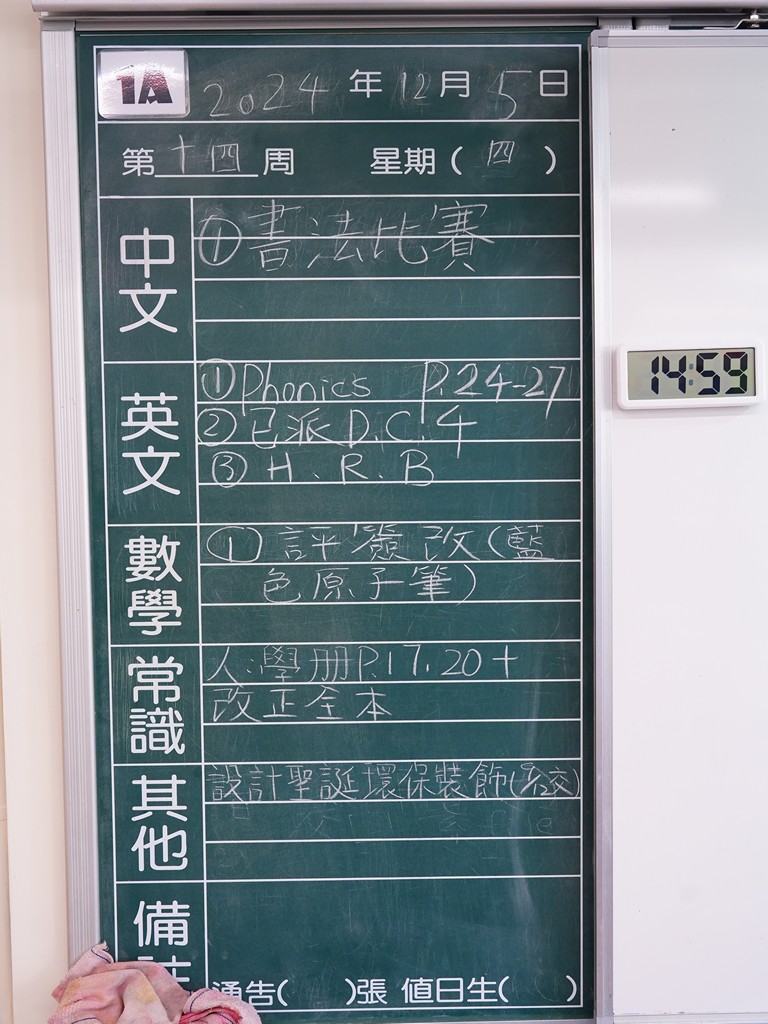 1A
2024年12月5日
第十四周 星期(四)
中文
①書法比賽
英文
①Phonics P.24-27
②已派D.C.4
③H.R.B
數學
①評簽改(藍
色原子筆)
常識
人:學册P.17.20+
改正全本
其他
設計聖誕環保裝飾(
備
通告( )張 值日生( )
14:59